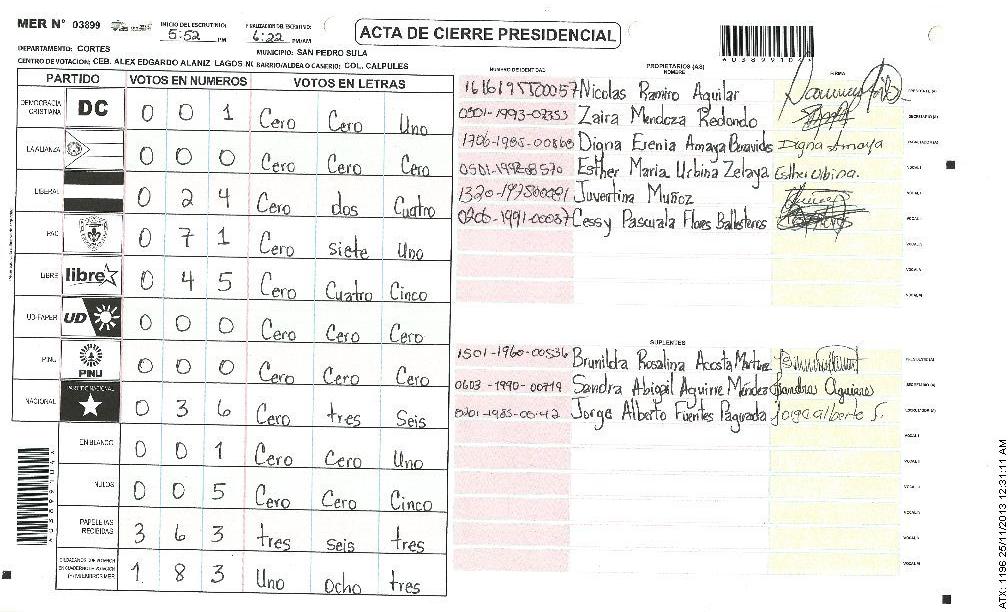 MER N° 03899
INICIO DEL ESCRUTINIO: 5:52 PM
FINALIZACION DEL ESCRUTINIO: 6:22 PM/AM
ACTA DE CIERRE PRESIDENCIAL
A03899104
DEPARTAMENTO: CORTES
MUNICIPIO: SAN PEDRO SULA
CENTRO DE VOTACION: CEB. ALEX EDGARDO ALANIZ LAGOS NO BARRIO/ALDEA O CASERIO: COL. CALPULES
PARTIDO VOTOS EN NUMEROS VOTOS EN LETRAS
DEMOCRACIA CRISTIANA DC 0 0 1 Cero Cero Uno
LA ALIANZA 0 0 0 Cero Cero Cero
LIBERAL 0 2 4 Cero dos Cuatro
PAC 0 7 1 Cero siete Uno
LIBRE libre 0 4 5 Cero Cuatro Cinco
UD-FAPER UD 0 0 0 Cero Cero Cero
PINU PINU 0 0 0 Cero Cero Cero
NACIONAL PARTIDO NACIONAL 0 3 6 Cero tres Seis
EN BLANCO 0 0 1 Cero Cero Uno
NULOS 0 0 5 Cero Cero Cinco
PAPELETAS RECIBIDAS 3 6 3 tres seis tres
1 8 3 Uno ocho tres
NUMERO DE IDENTIDAD PROPIETARIOS (AS) NOMBRE FIRMA
Nicolas Ramiro Aguilar PRESIDENTE (A)
0501-1993-02353 Zaira Mendoza Redondo SECRETARIO (A)
1706-1985-00868 Digna Erenia Amaya Benavides Digna Amaya ESCRUTADOR (A)
Esther Maria Urbina Zelaya Esther Urbina. VOCAL I
Juventina Muñoz VOCAL II
0206-1991-00037 Cessy Pascuala Flores Ballesteros VOCAL III
VOCAL IV
VOCAL V
VOCAL VI
SUPLENTES
1501-1960-00536 Brunilda Rosalina Acosta PRESIDENTE (A)
0603-1990-00719 Sandra Abigail Aguirre Méndez Sandra Aguirre SECRETARIO (A)
Jorge Alberto Fuentes Jorge alberto F. ESCRUTADOR (A)
VOCAL I
VOCAL II
VOCAL III
VOCAL IV
VOCAL V
VOCAL VI
ATX: 1196 25/11/2013 12:31:11 AM